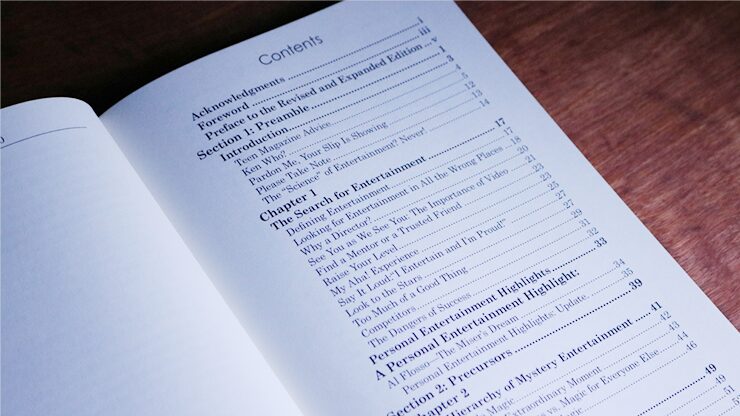 Contents
Acknowledgments i
Foreword iii
Preface to the Revised and Expanded Edition v
Section 1: Preamble 1
Introduction 3
Teen Magazine Advice 4
Ken Who? 5
Pardon Me, Your Slip Is Showing 12
Please Take Note 13
The "Science" of Entertainment? Never! 14
Chapter 1
The Search for Entertainment 17
Defining Entertainment 17
Looking for Entertainment in All the Wrong Places 18
Why a Director? 20
See You as We See You: The Importance of Video 21
Find a Mentor or a Trusted Friend 23
Raise Your Level 25
My Aha! Experience 27
Say It Loud—"I Entertain and I'm Proud!" 27
Look to the Stars 29
Too Much of a Good Thing 31
Competitors 32
The Dangers of Success 33
Personal Entertainment Highlights
A Personal Entertainment Highlight:
Al Flosso—The Miser's Dream 34
Personal Entertainment Highlights: Update 35
Section 2: Precursors 39
Chapter 2
Hierarchy of Mystery Entertainment 41
Extraordinary Moment
Magic
vs. Magic for Everyone Else 46
49